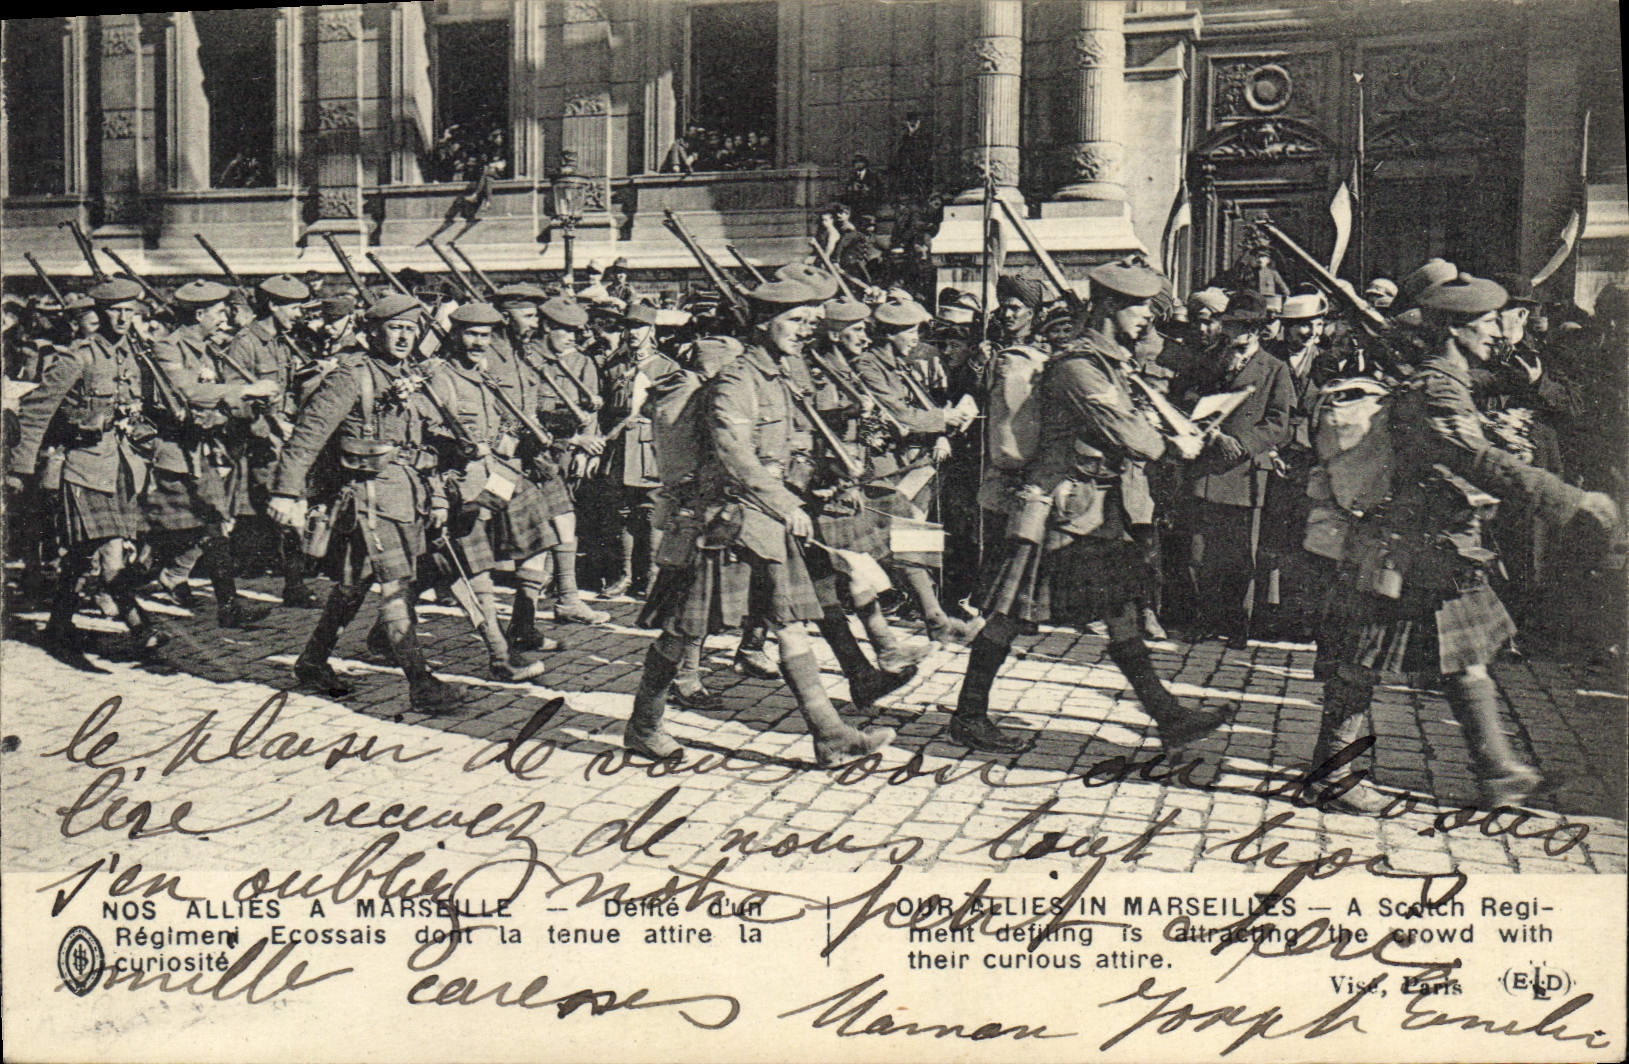 le plaisir de vous son ou de vous
lire recevez de nous tout trois
j'en oubliez notre petit cheri
mille caresses Maman Joseph Emile
NOS ALLIÉS A MARSEILLE — Défilé d'un
Régiment Ecossais dont la tenue attire la
curiosité
OUR ALLIES IN MARSEILLES — A Scotch Regi-
ment defiling is attracting the crowd with
their curious attire.
Visé, Paris (ELD)